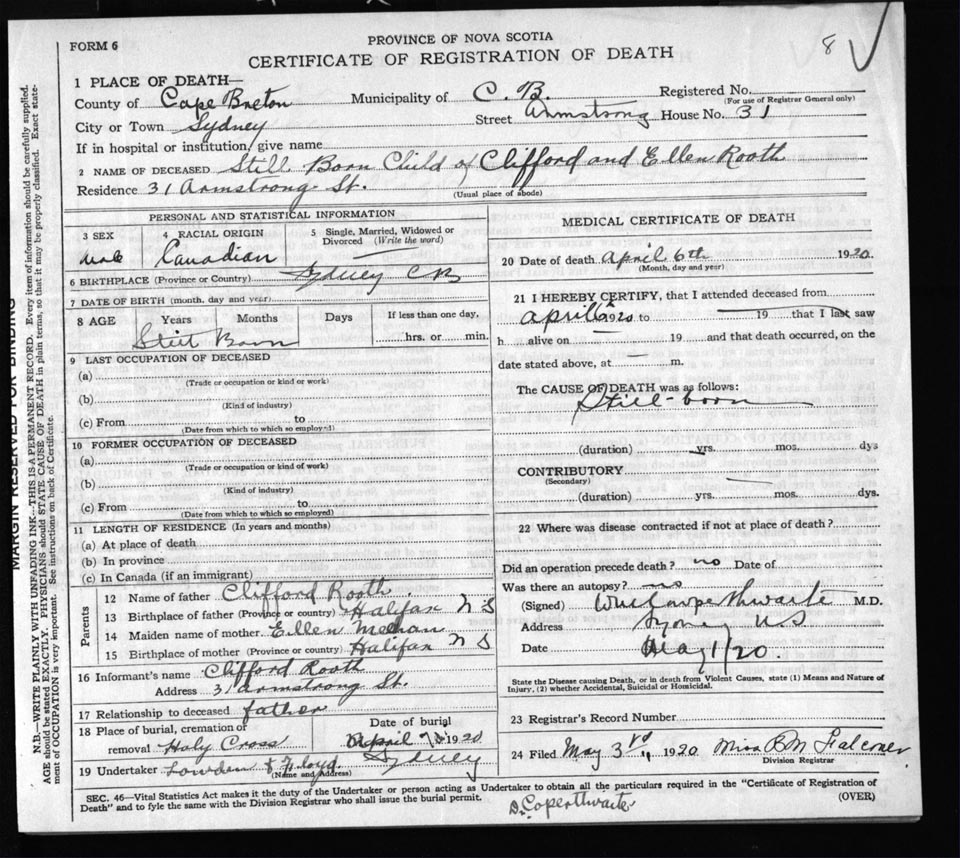 8
FORM 6
PROVINCE OF NOVA SCOTIA
CERTIFICATE OF REGISTRATION OF DEATH
1 PLACE OF DEATH—
County of Cape Breton Municipality of C. B. Registered No.
(For use of Registrar General only)
City or Town Sydney Street Armstrong House No. 31
If in hospital or institution, give name
2 NAME OF DECEASED Still Born Child of Clifford and Ellen Rooth
Residence 31 Armstrong St. (Usual place of abode)
PERSONAL AND STATISTICAL INFORMATION
3 SEX 4 RACIAL ORIGIN 5 Single, Married, Widowed or Divorced (Write the word)
male Canadian
6 BIRTHPLACE (Province or Country) Sydney CB
7 DATE OF BIRTH (month, day and year)
8 AGE Years Months Days If less than one day,
Still Born hrs. or min.
9 LAST OCCUPATION OF DECEASED
(a)
(Trade or occupation or kind or work)
(b)
(Kind of industry)
(c) From to
(Date from which to which so employed)
10 FORMER OCCUPATION OF DECEASED
(a)
(Trade or occupation or kind of work)
(b)
(Kind of industry)
(c) From to
(Date from which to which so employed)
11 LENGTH OF RESIDENCE (In years and months)
(a) At place of death
(b) In province
(c) In Canada (if an immigrant)
Parents
12 Name of father Clifford Rooth
13 Birthplace of father (Province or country) Halifax N S
14 Maiden name of mother Ellen
15 Birthplace of mother (Province or country) Halifax N S
16 Informant's name Clifford Rooth
Address 31 Armstrong St.
17 Relationship to deceased father
18 Place of burial, cremation or removal Holy Cross Date of burial April 7 1920
19 Undertaker Lowden & Floyd Sydney
(Name and Address)
MEDICAL CERTIFICATE OF DEATH
20 Date of death April 6th 1920.
(Month, day and year)
21 I HEREBY CERTIFY, that I attended deceased from
April 6 1920 to 19 that I last saw
h alive on 19 and that death occurred, on the
date stated above, at — m.
The CAUSE OF DEATH was as follows:
Still-born
(duration) yrs. mos. dys
CONTRIBUTORY
(Secondary)
(duration) yrs. mos. dys.
22 Where was disease contracted if not at place of death?
Did an operation precede death? no Date of
Was there an autopsy? no
(Signed) M.D.
Address Sydney N.S
Date May 1/20.
State the Disease causing Death, or in death from Violent Causes, state (1) Means and Nature of
Injury, (2) whether Accidental, Suicidal or Homicidal.
23 Registrar's Record Number
24 Filed May 3rd, 1920 Miss Falconer
Division Registrar
SEC. 46—Vital Statistics Act makes it the duty of the Undertaker or person acting as Undertaker to obtain all the particulars required in the "Certificate of Registration of
Death" and to fyle the same with the Division Registrar who shall issue the burial permit. (OVER)
Dr Coperthwaite
MARGIN RESERVED FOR BINDING
N.B.—WRITE PLAINLY WITH UNFADING INK—THIS IS A PERMANENT RECORD. Every item of information should be carefully supplied.
AGE should be stated EXACTLY. PHYSICIANS should STATE CAUSE OF DEATH in plain terms, so that it may be properly classified. Exact state-
ment of OCCUPATION is very important. See instructions on back of Certificate.